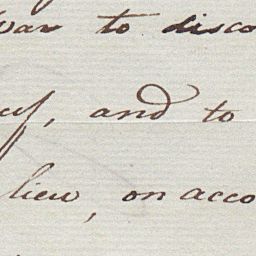 war to disco
cy, and to
lieu, on acco